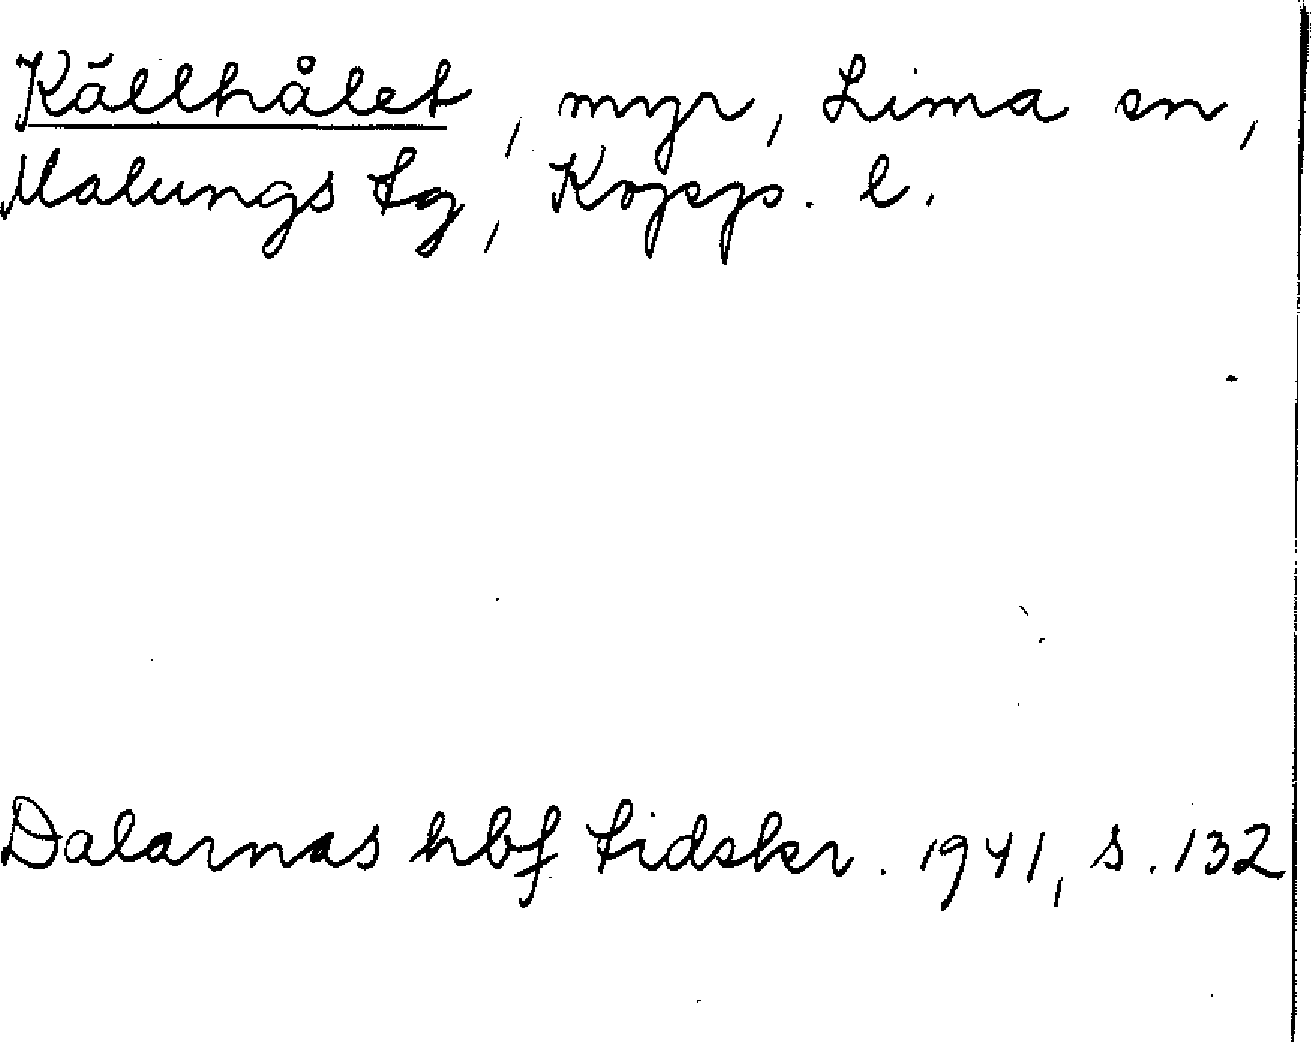 Källhålet, myr, Lima sn,
Malungs tg, Kopp. l.
Dalarnas hbf tidskr. 1941, s. 132